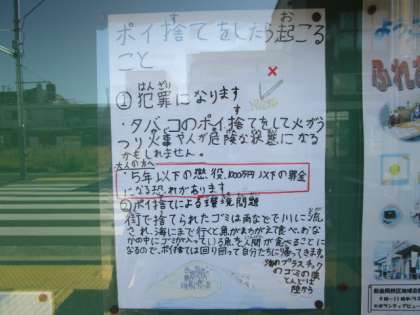 ポイ捨てをしたら起こる
こと
①犯罪になります
・タバコのポイ捨てをして火がう
つり火事や人が危険な状態になる
かもしれません。
大人の方へ
・5年以下の懲役、1000万円以下の罰金
になる恐れがあります
②ポイ捨てによる環境問題
街で捨てられたゴミは雨などで川に流
され、海にまで行くと魚がまちがえて食べ、おな
かの中にゴミが入っている魚を人間が食べることに
なるので、ポイ捨ては回り回って自分たちに帰ってきます。
海のプラスチック
のゴミの8
ようこ
ふれ